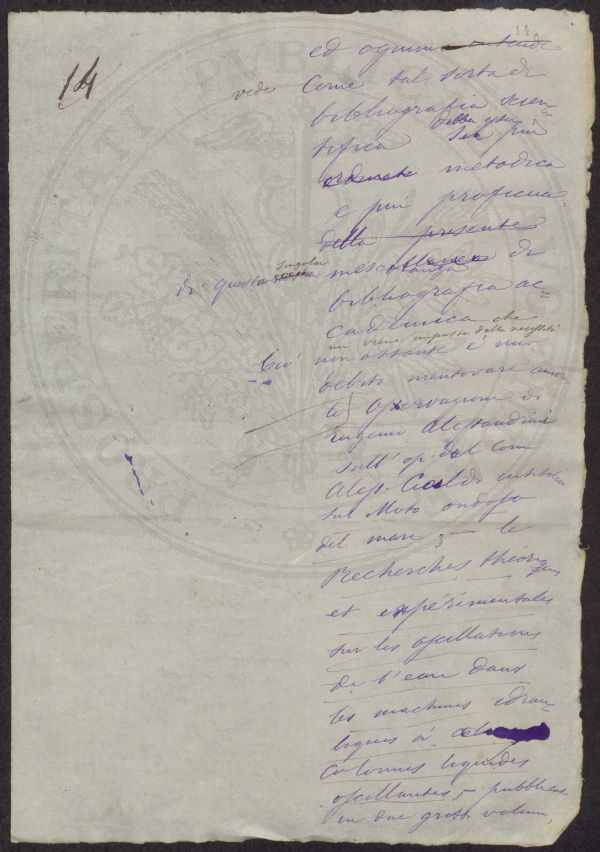 14
14
ed ognuno intende
vede come tal sorta di
bibliografia scien=
tifica sia più
ordinata metodica
e più proficua
della presente
singolar
di questa mescolanza di
bibliografia ac=
cademica che
mi viene imposta dalla necessità
Ciò non ostante è mio
debito mentovare
le Osservazioni di
Eugenio Alessandrini
sull'op. del Com
Aless. Cialdi intitolata
sul Moto ondoso
del mare; — le
Recherches theoriques
et expérimentales
sur les oscillations
de l'eau dans
les machines idrau=
liques à
colonnes liquides
oscillantes, — pubblicate
in due grossi volumi,